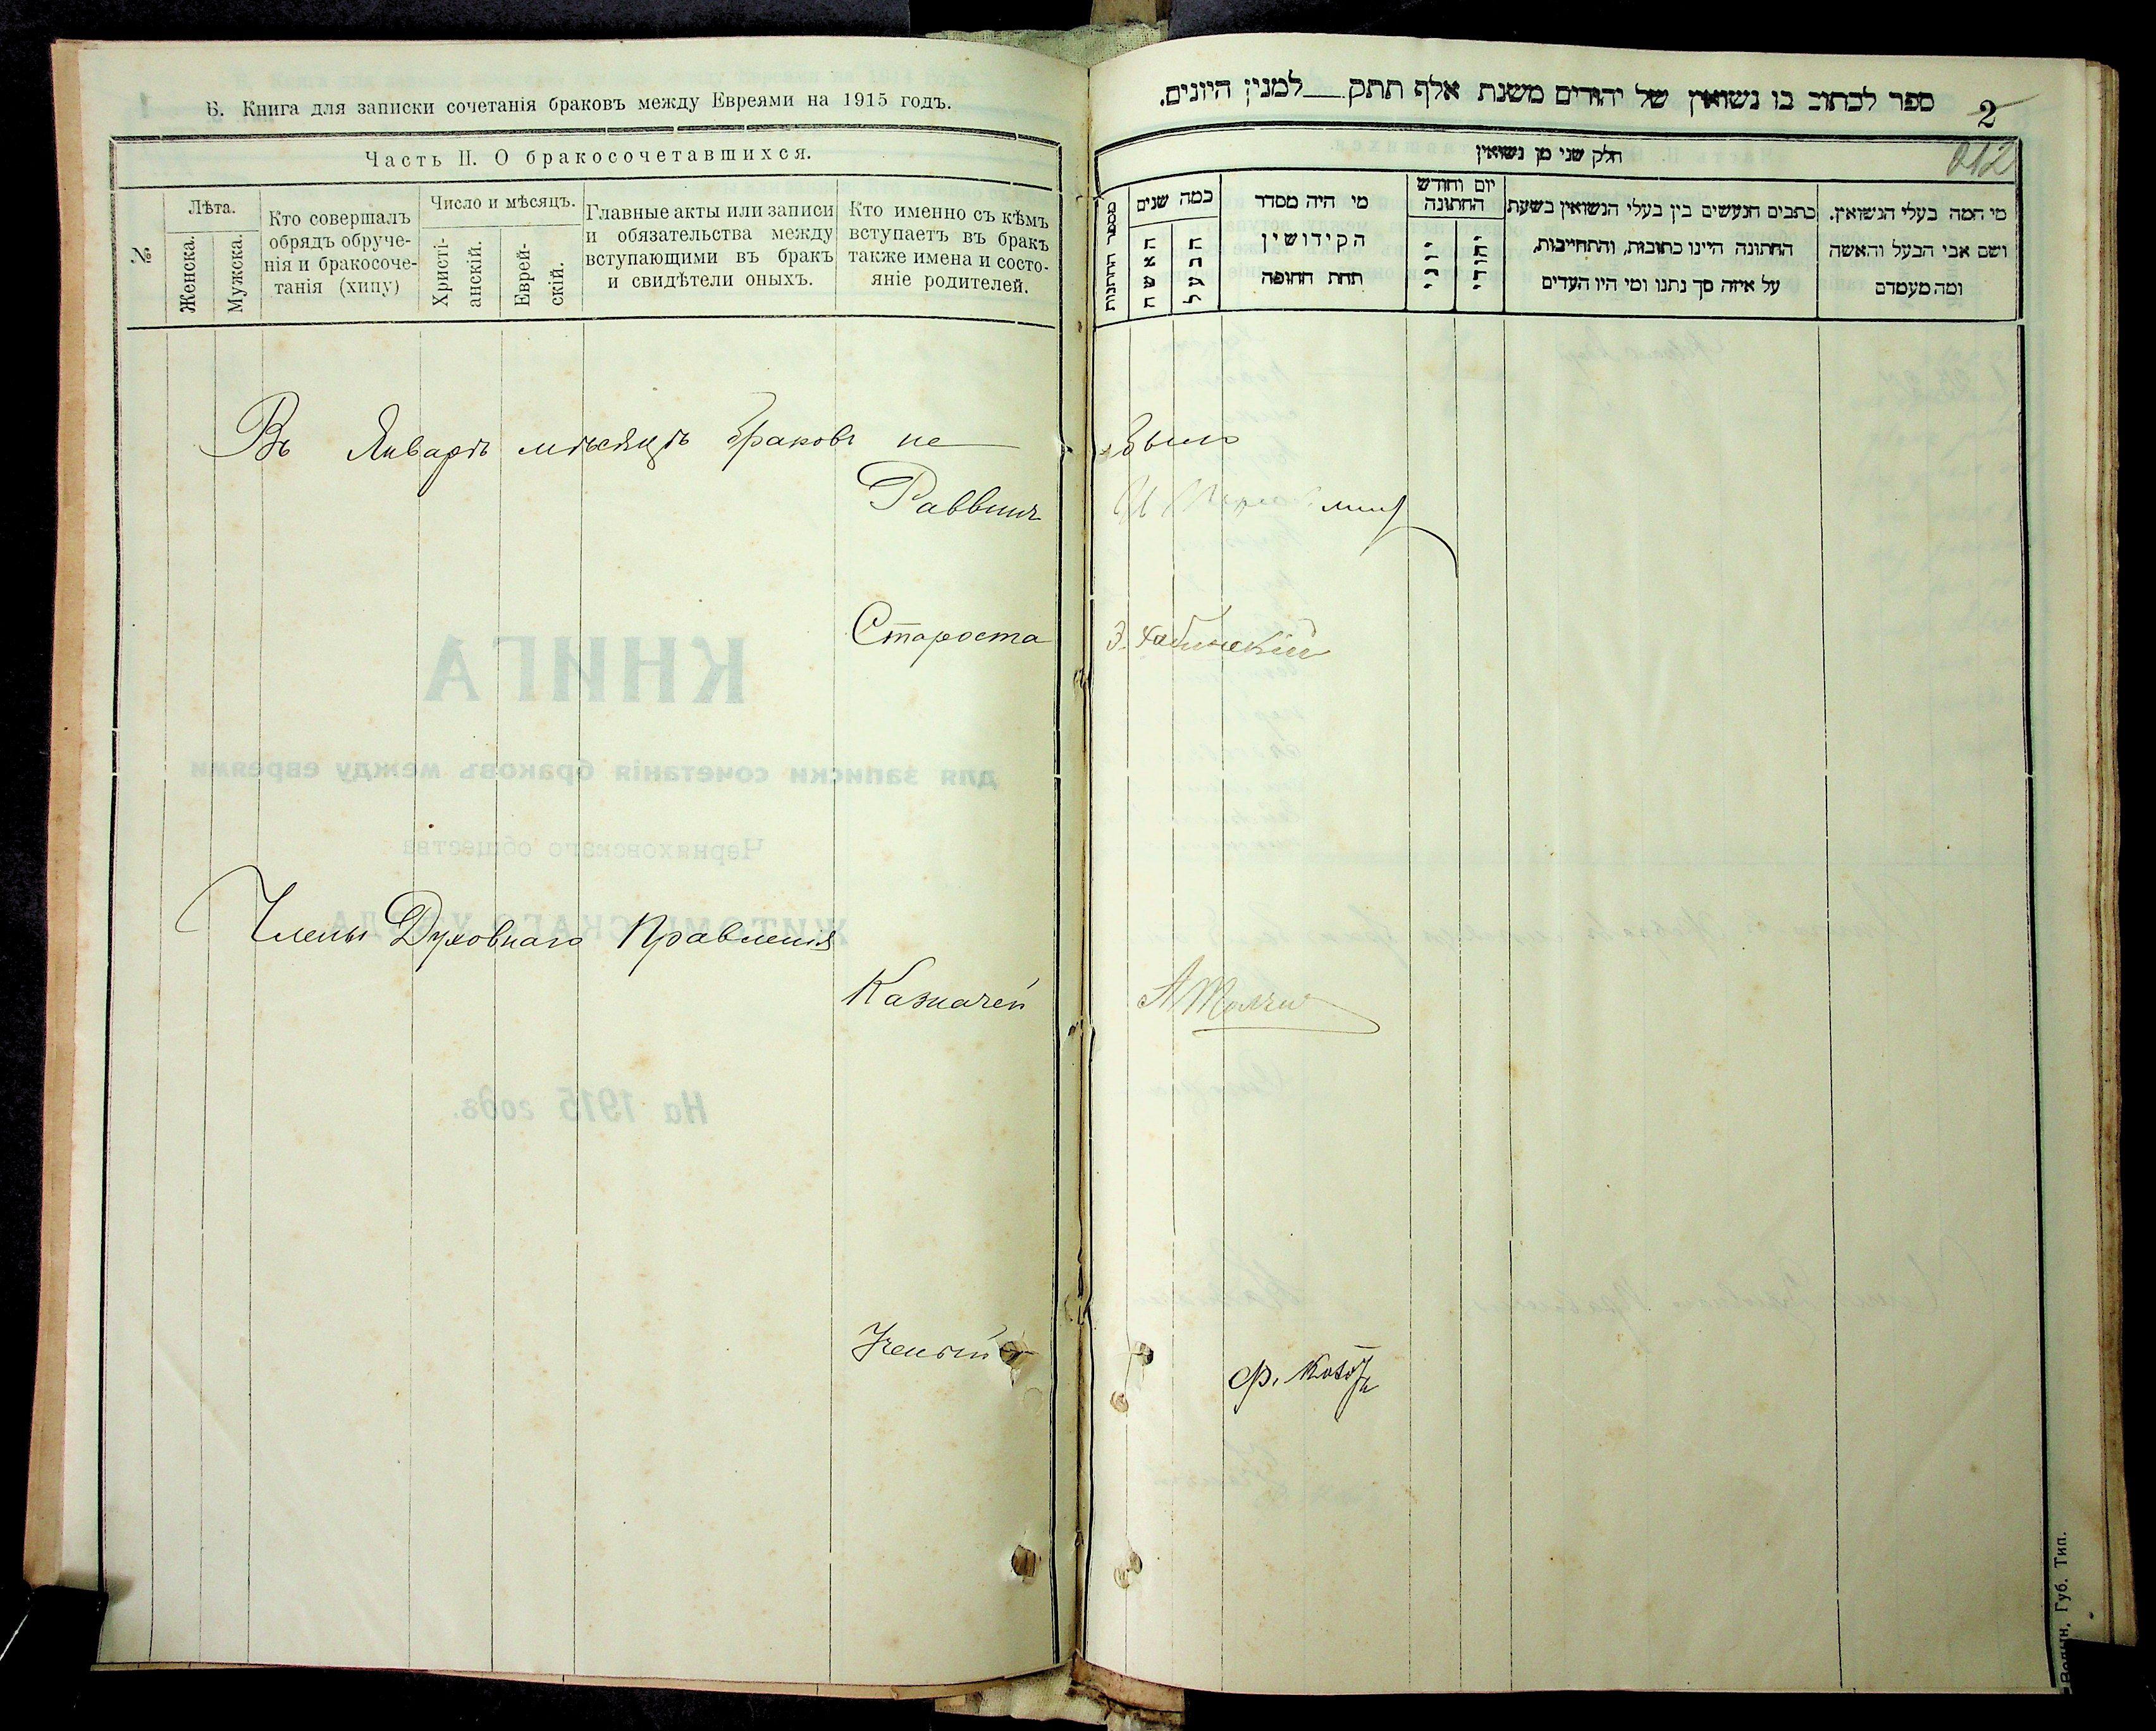 Б. Книга для записки сочетанія браковъ между Евреями на 1915 годъ.
Часть II. О бракосочетавшихся.
№
Лѣта.
Женска.
Мужска.
Кто совершалъ
обрядъ обруче-
нія и бракосоче-
танія (хипу)
Число и мѣсяцъ.
Христі-
анскій.
Еврей-
скій.
Главные акты или записи
и обязательства между
вступающими въ бракъ
и свидѣтели оныхъ.
Кто именно съ кѣмъ
вступаетъ въ бракъ
также имена и состо-
яніе родителей.
ספר לכתוב בו נשואין של יהודים משנת אלף תתק___למנין היונים.
2
012
חלק שני מן נשואין
מי המה בעלי הנשואין.
ושם אבי הבעל והאשה
ומה מעמדם
כתבים הנעשים בין בעלי הנשואין בשעת
החתונה היינו כתובות, והתחייבות,
על איזה סך נתנו ומי היו העדים
יום וחודש
החתונה
יהודי
יוני
מי היה מסדר
הקידושין
תחת החופה
כמה שנים
הבעל
האשה
מספר החתונות
Въ Январѣ мѣсяцѣ браковъ не было
Раввинъ
Староста
Члены Духовнаго Правленія
Казначей
Ученый
Ф.
КНИГА
для записки сочетанія браковъ между евреями
Черняховскаго общества
ЖИТОМІРСКАГО УѢЗДА
На 1915 годъ.
Волын. Губ. Тип.